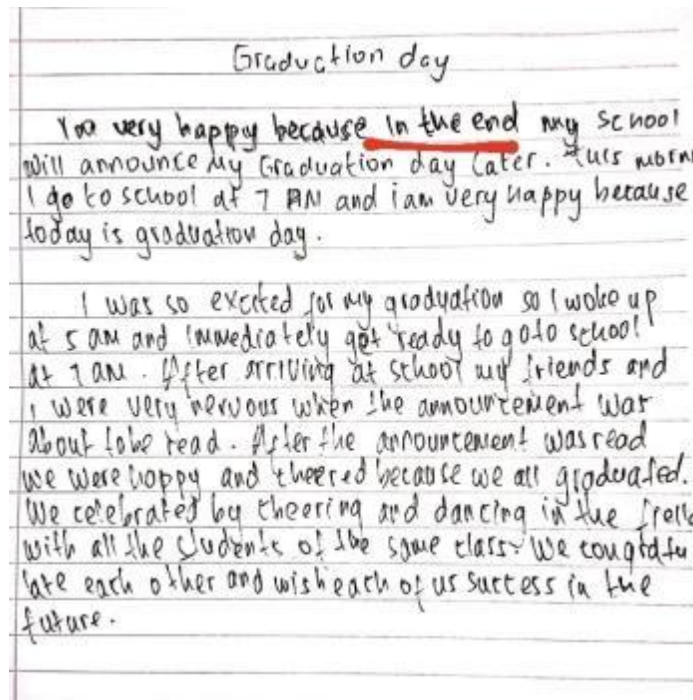 Graduction day
very happy because in the end my school
will announce My Graduation day Later. this morn
I go to school at 7 AM and i am very happy because
today is graduation day.
I was so excited for my graduation so I woke up
at 5 am and immediately got ready to go to school
at 7 am. After arriving at school my friends and
I were very nervous when the announcement was
about to be read. After the announcement was read
we were happy and cheered because we all graduated.
We celebrated by cheering and dancing in the
with all the students of the same class. We
late each other and wish each of us success in the
future.